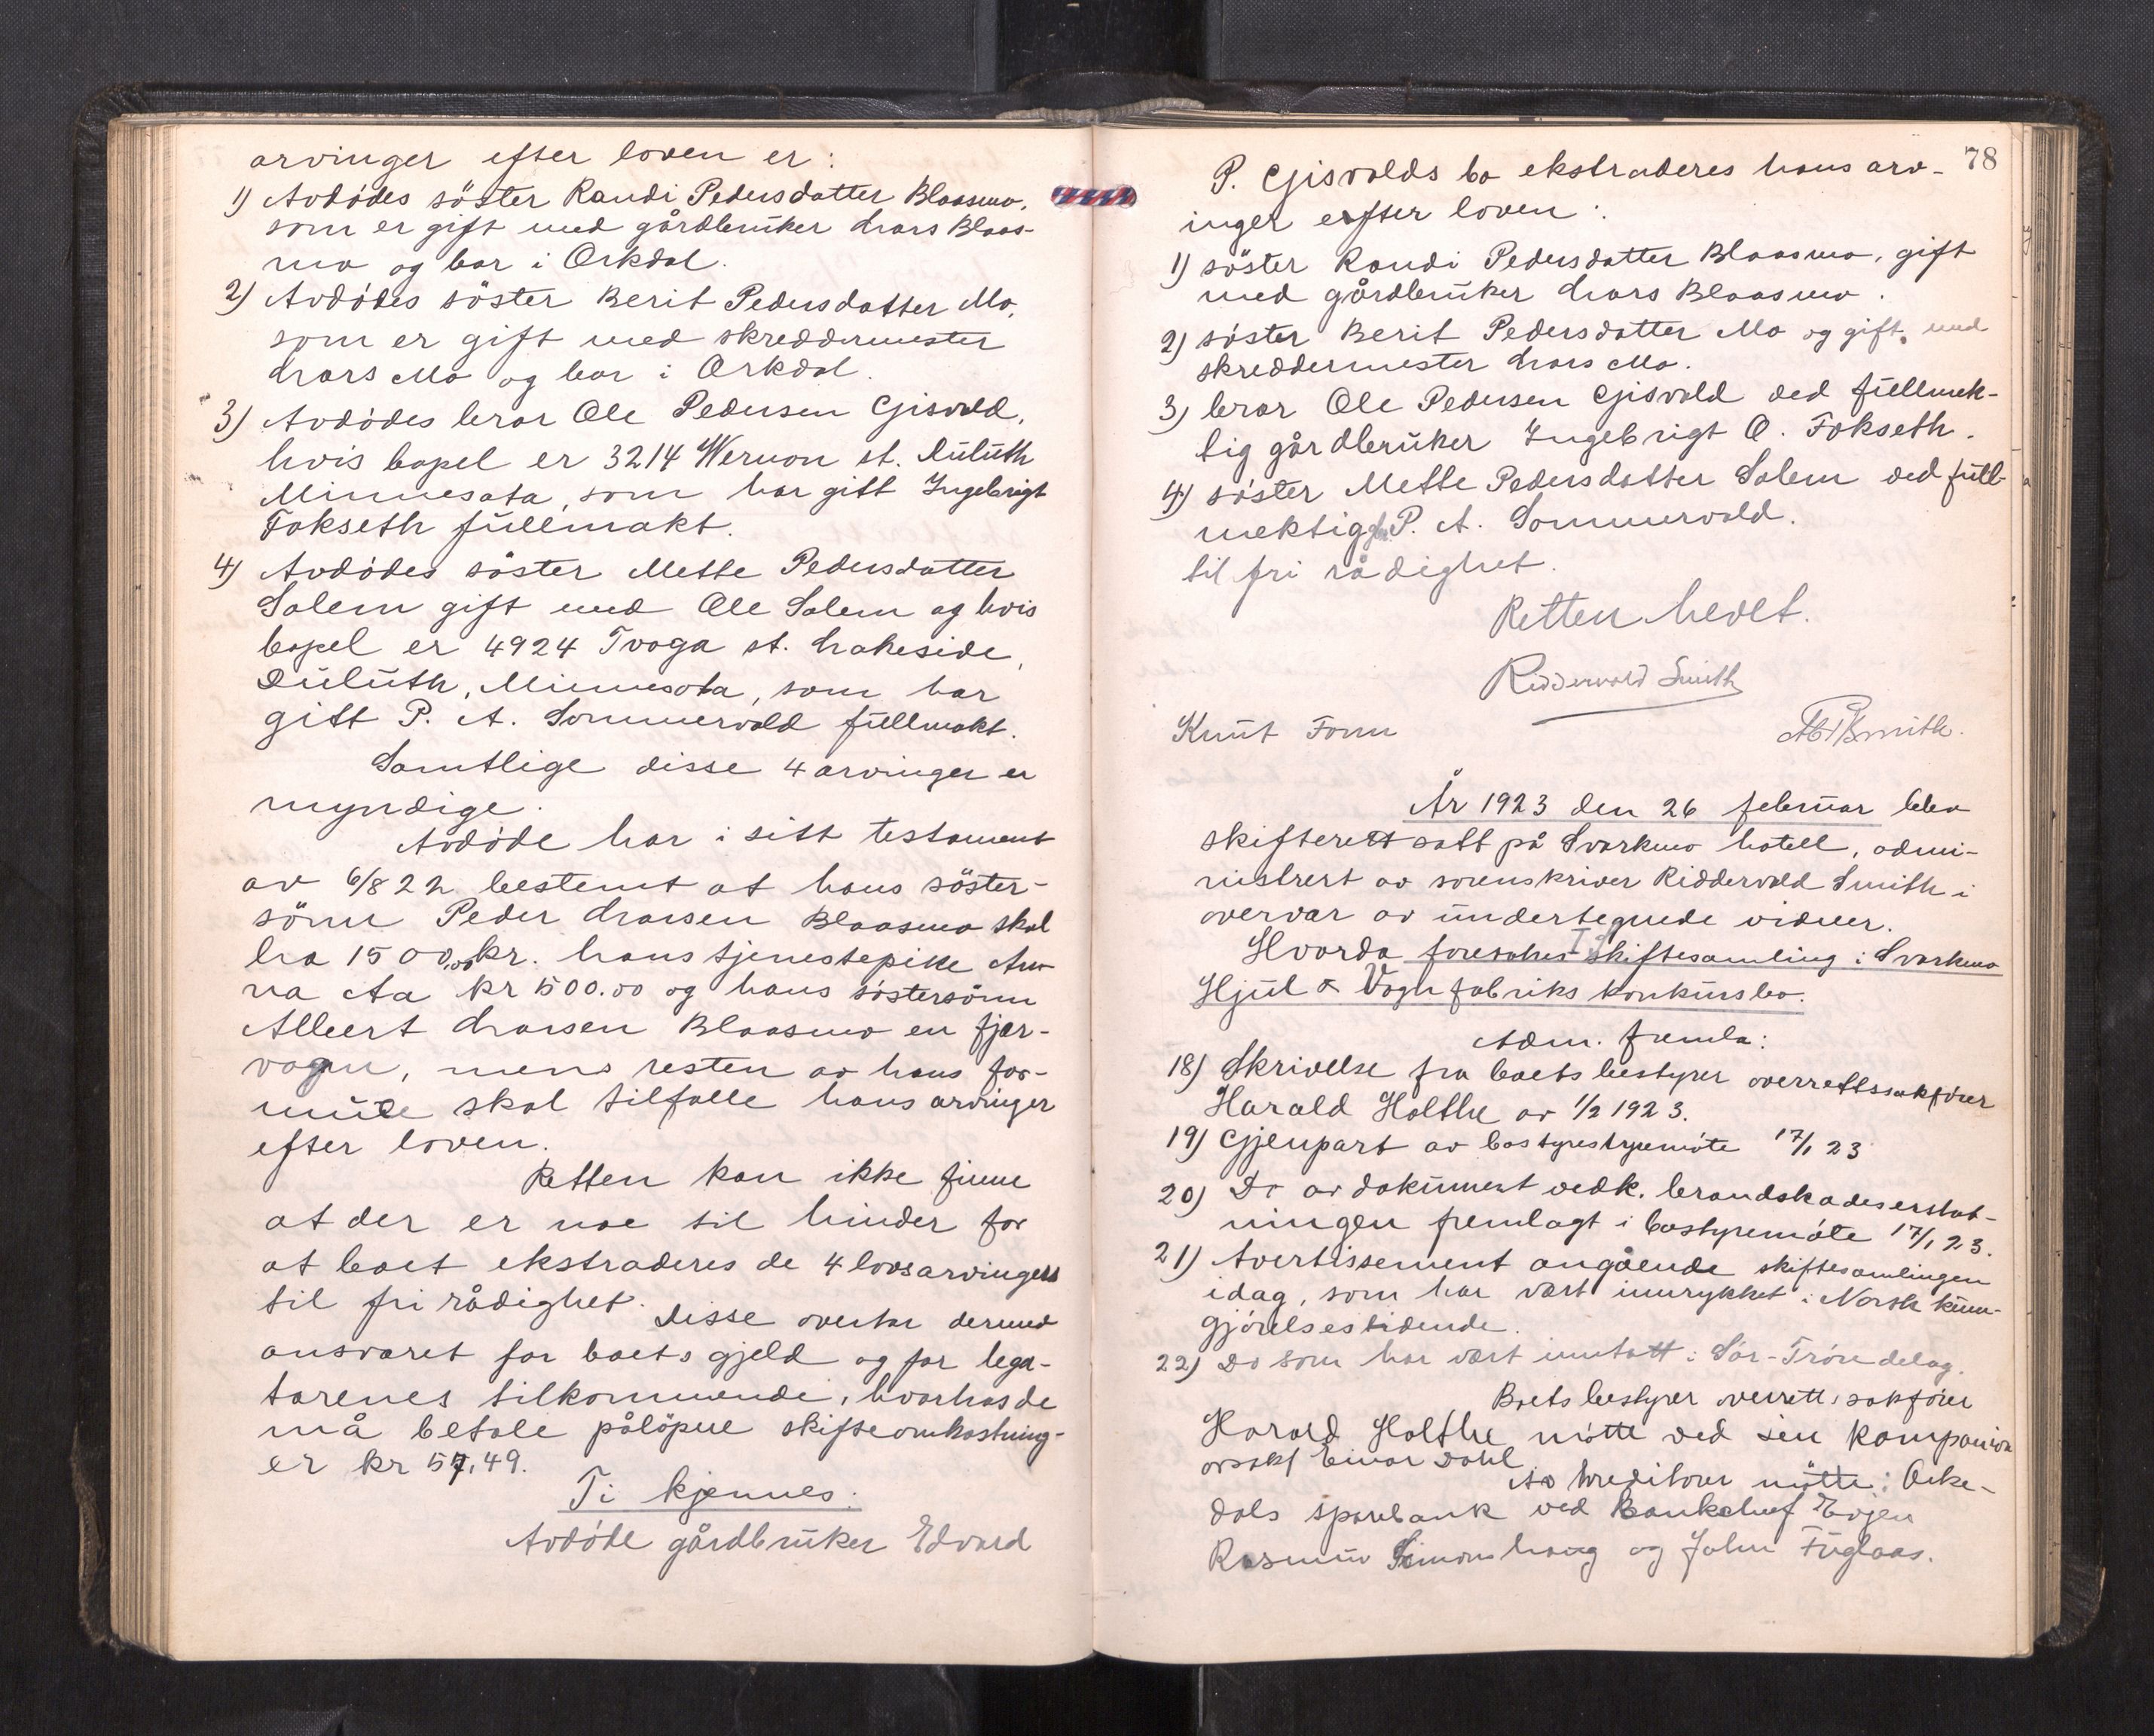 arvinger efter loven er:
1) Avdødes söster Randi Pedersdatter Blaasmo,
som er gift med gårdbruker Lars Blaas-
mo og bor i Orkdal.
2) Avdødes söster Berit Pedersdatter Mo,
som er gift med skreddermester
Lars Mo og bor i Orkdal.
3) Avdødes bror Ole Pedersen Gjisvold,
hvis bopel er 3214 Wernon st. Duluth
Minnesota, som har gitt Ingebrigt
Fokseth fullmakt.
4) Avdødes söster Mette Pedersdatter
Solem gift med Ole Solem og hvis
bopel er 4924 Tvoga st. Lakeside,
Duluth, Minnesota, som har
gitt P. A. Sommervold fullmakt.
Samtlige disse 4 arvinger er
myndige.
Avdöde har i sitt testament
av 6/8 22 bestemt at hans söster-
sönn Peder Larsen Blaasmo skal
ha 1500,00 kr. hans tjenestepike An-
na Aa kr 500.00 og hans söstersönn
Albert Larsen Blaasmo en fjær-
vogn, mens resten av hans for-
mue skal tilfalle hans arvinger
efter loven.
Retten kan ikke finne
at der er noe til hinder for
at boet ekstraderes de 4 lovsarvinger
til fri rådighet. Disse overtar dermed
ansvaret for boets gjeld og for lega-
tarenes tilkommende, hvorhos de
må betale pålöpne skifteomkostning-
er kr 57,49.
Ti kjennes:
Avdöde gårdbruker Edvard
78
P. Gjisvolds bo ekstraderes hans arv-
inger efter loven:
1) söster Randi Pedersdatter Blaasmo, gift
med gårdbruker Lars Blaasmo.
2) söster Berit Pedersdatter Mo og gift med
skreddermester Lars Mo.
3) bror Ole Pedersen Gjisvold ved fullmek-
tig gårdbruker Ingebrigt O. Fokseth.
4) söster Mette Pedersdatter Solem ved full-
mektig P. A. Sommervold.
til fri rådighet.
Retten hevet.
Riddervold Smith
Knut Forun
År 1923 den 26 februar blev
skifterett satt på Svorkmo hotell, admi-
nistrert av sorenskriver Riddervold Smith i
overvær av undertegnede vidner.
Hvorda foretokes skiftesamling i Svorkmo
Hjul & Vogn fabriks konkursbo.
Adm. fremla:
18) Skrivelse fra boets bestyrer overrettssakförer
Harald Holthe av 1/2 1923.
19) Gjenpart av bostyrestyremöte 17/1 23
20) Do av dokument vedk. brandskadeserstat-
ningen fremlagt i bostyremöte 17/1 23.
21) Avertissement angående skiftesamlingen
idag, som har vært innrykket i Norsk kunn-
gjörelsestidende.
22) Do som har vært inntatt i Sör-Tröndelag.
Boets bestyrer overretts sakförer
Harald Holthe mötte ved sin kompanion
orsakf Einar Dahl
Av kreditorer mötte: Orke-
dals sparebank ved Bankchef Evjen
Rasmus Simonshaug og John Fuglaas.